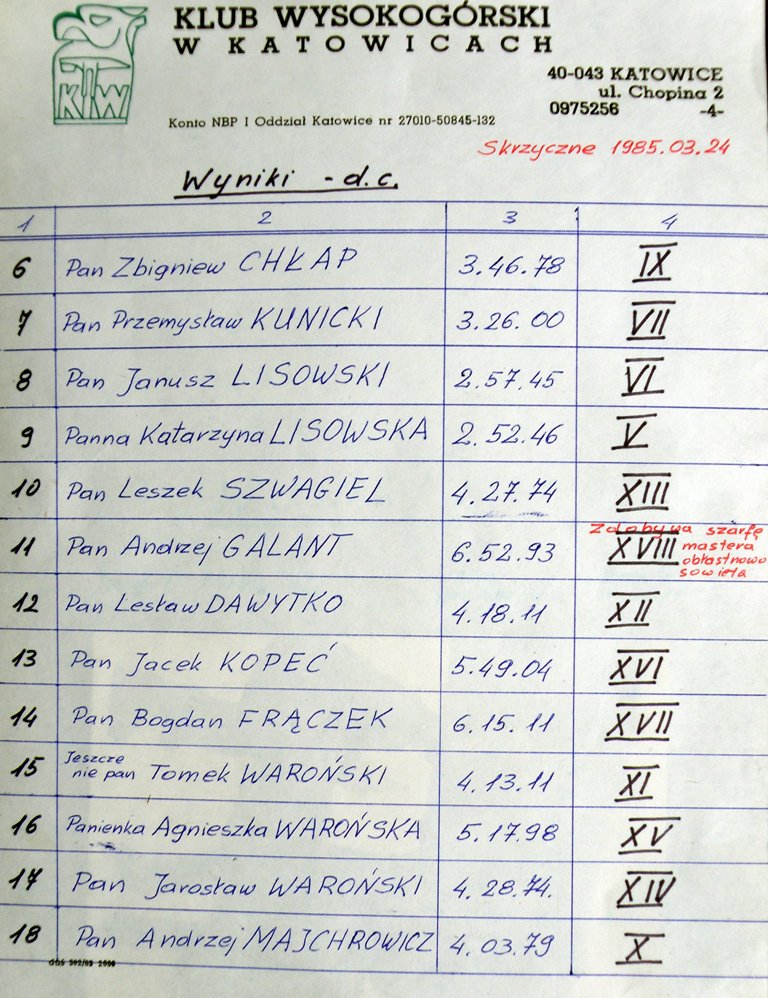 KLUB WYSOKOGÓRSKI
W KATOWICACH
KW
40-043 KATOWICE
ul. Chopina 2
0975256 -4-
Konto NBP I Oddział Katowice nr 27010-50845-132
Skrzyczne 1985.03.24
Wyniki - d.c.
1 2 3 4
6 Pan Zbigniew CHŁAP 3.46.78 IX
7 Pan Przemysław KUNICKI 3.26.00 VII
8 Pan Janusz LISOWSKI 2.57.45 VI
9 Panna Katarzyna LISOWSKA 2.52.46 V
10 Pan Leszek SZWAGIEL 4.27.74 XIII
11 Pan Andrzej GALANT 6.52.93 XVIII Zdobywa szarfę
mastera
obłastnowo
sowieta
12 Pan Lesław DAWYTKO 4.18.11 XII
13 Pan Jacek KOPEĆ 5.49.04 XVI
14 Pan Bogdan FRĄCZEK 6.15.11 XVII
15 Jeszcze
nie pan Tomek WAROŃSKI 4.13.11 XI
16 Panienka Agnieszka WAROŃSKA 5.17.98 XV
17 Pan Jarosław WAROŃSKI 4.28.74. XIV
18 Pan Andrzej MAJCHROWICZ 4.03.79 X